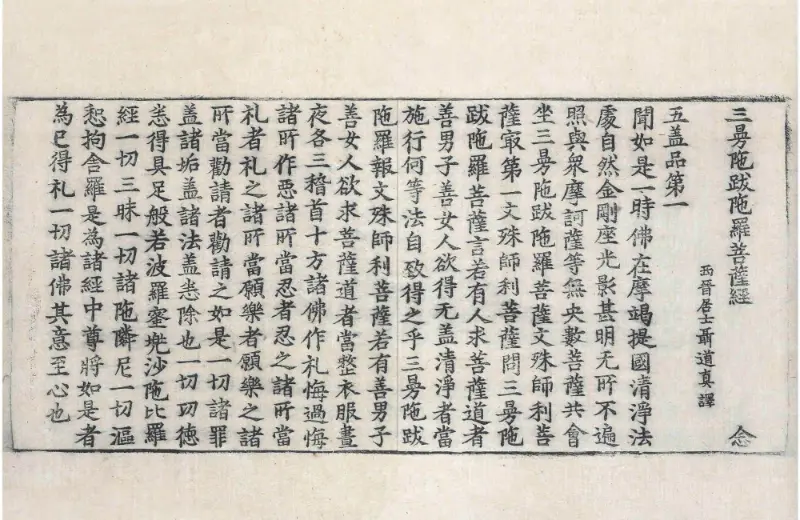 三曼陁跋陁羅菩薩經 念
西晉居士聶道真譯
五盖品第一
聞如是一時佛在摩竭提國清淨法
處自然金剛座光影甚明无所不遍
照與衆摩訶薩等無央數菩薩共會
坐三曼陁跋陁羅菩薩文殊師利菩
薩㝡第一文殊師利菩薩問三曼陁
跋陁羅菩薩言若有人求菩薩道者
善男子善女人欲得无盖清淨者當
施行何等法自致得之乎三曼陁跋
陁羅報文殊師利菩薩若有善男子
善女人欲求菩薩道者當整衣服晝
夜各三稽首十方諸佛作礼悔過悔
諸所作惡諸所當忍者忍之諸所當
礼者礼之諸所當願樂者願樂之諸
所當勸請者勸請之如是一切諸罪
盖諸垢盖諸法盖悉除也一切功德
悉得具足般若波羅蜜兠沙陁比羅
經一切三昧一切諸陁隣尼一切漚
惒拘舍羅是為諸經中尊將如是者
為已得礼一切諸佛其意至心也